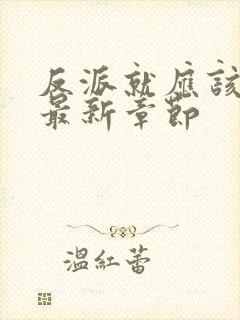 反派就應該
最新章節
溫紅蕾